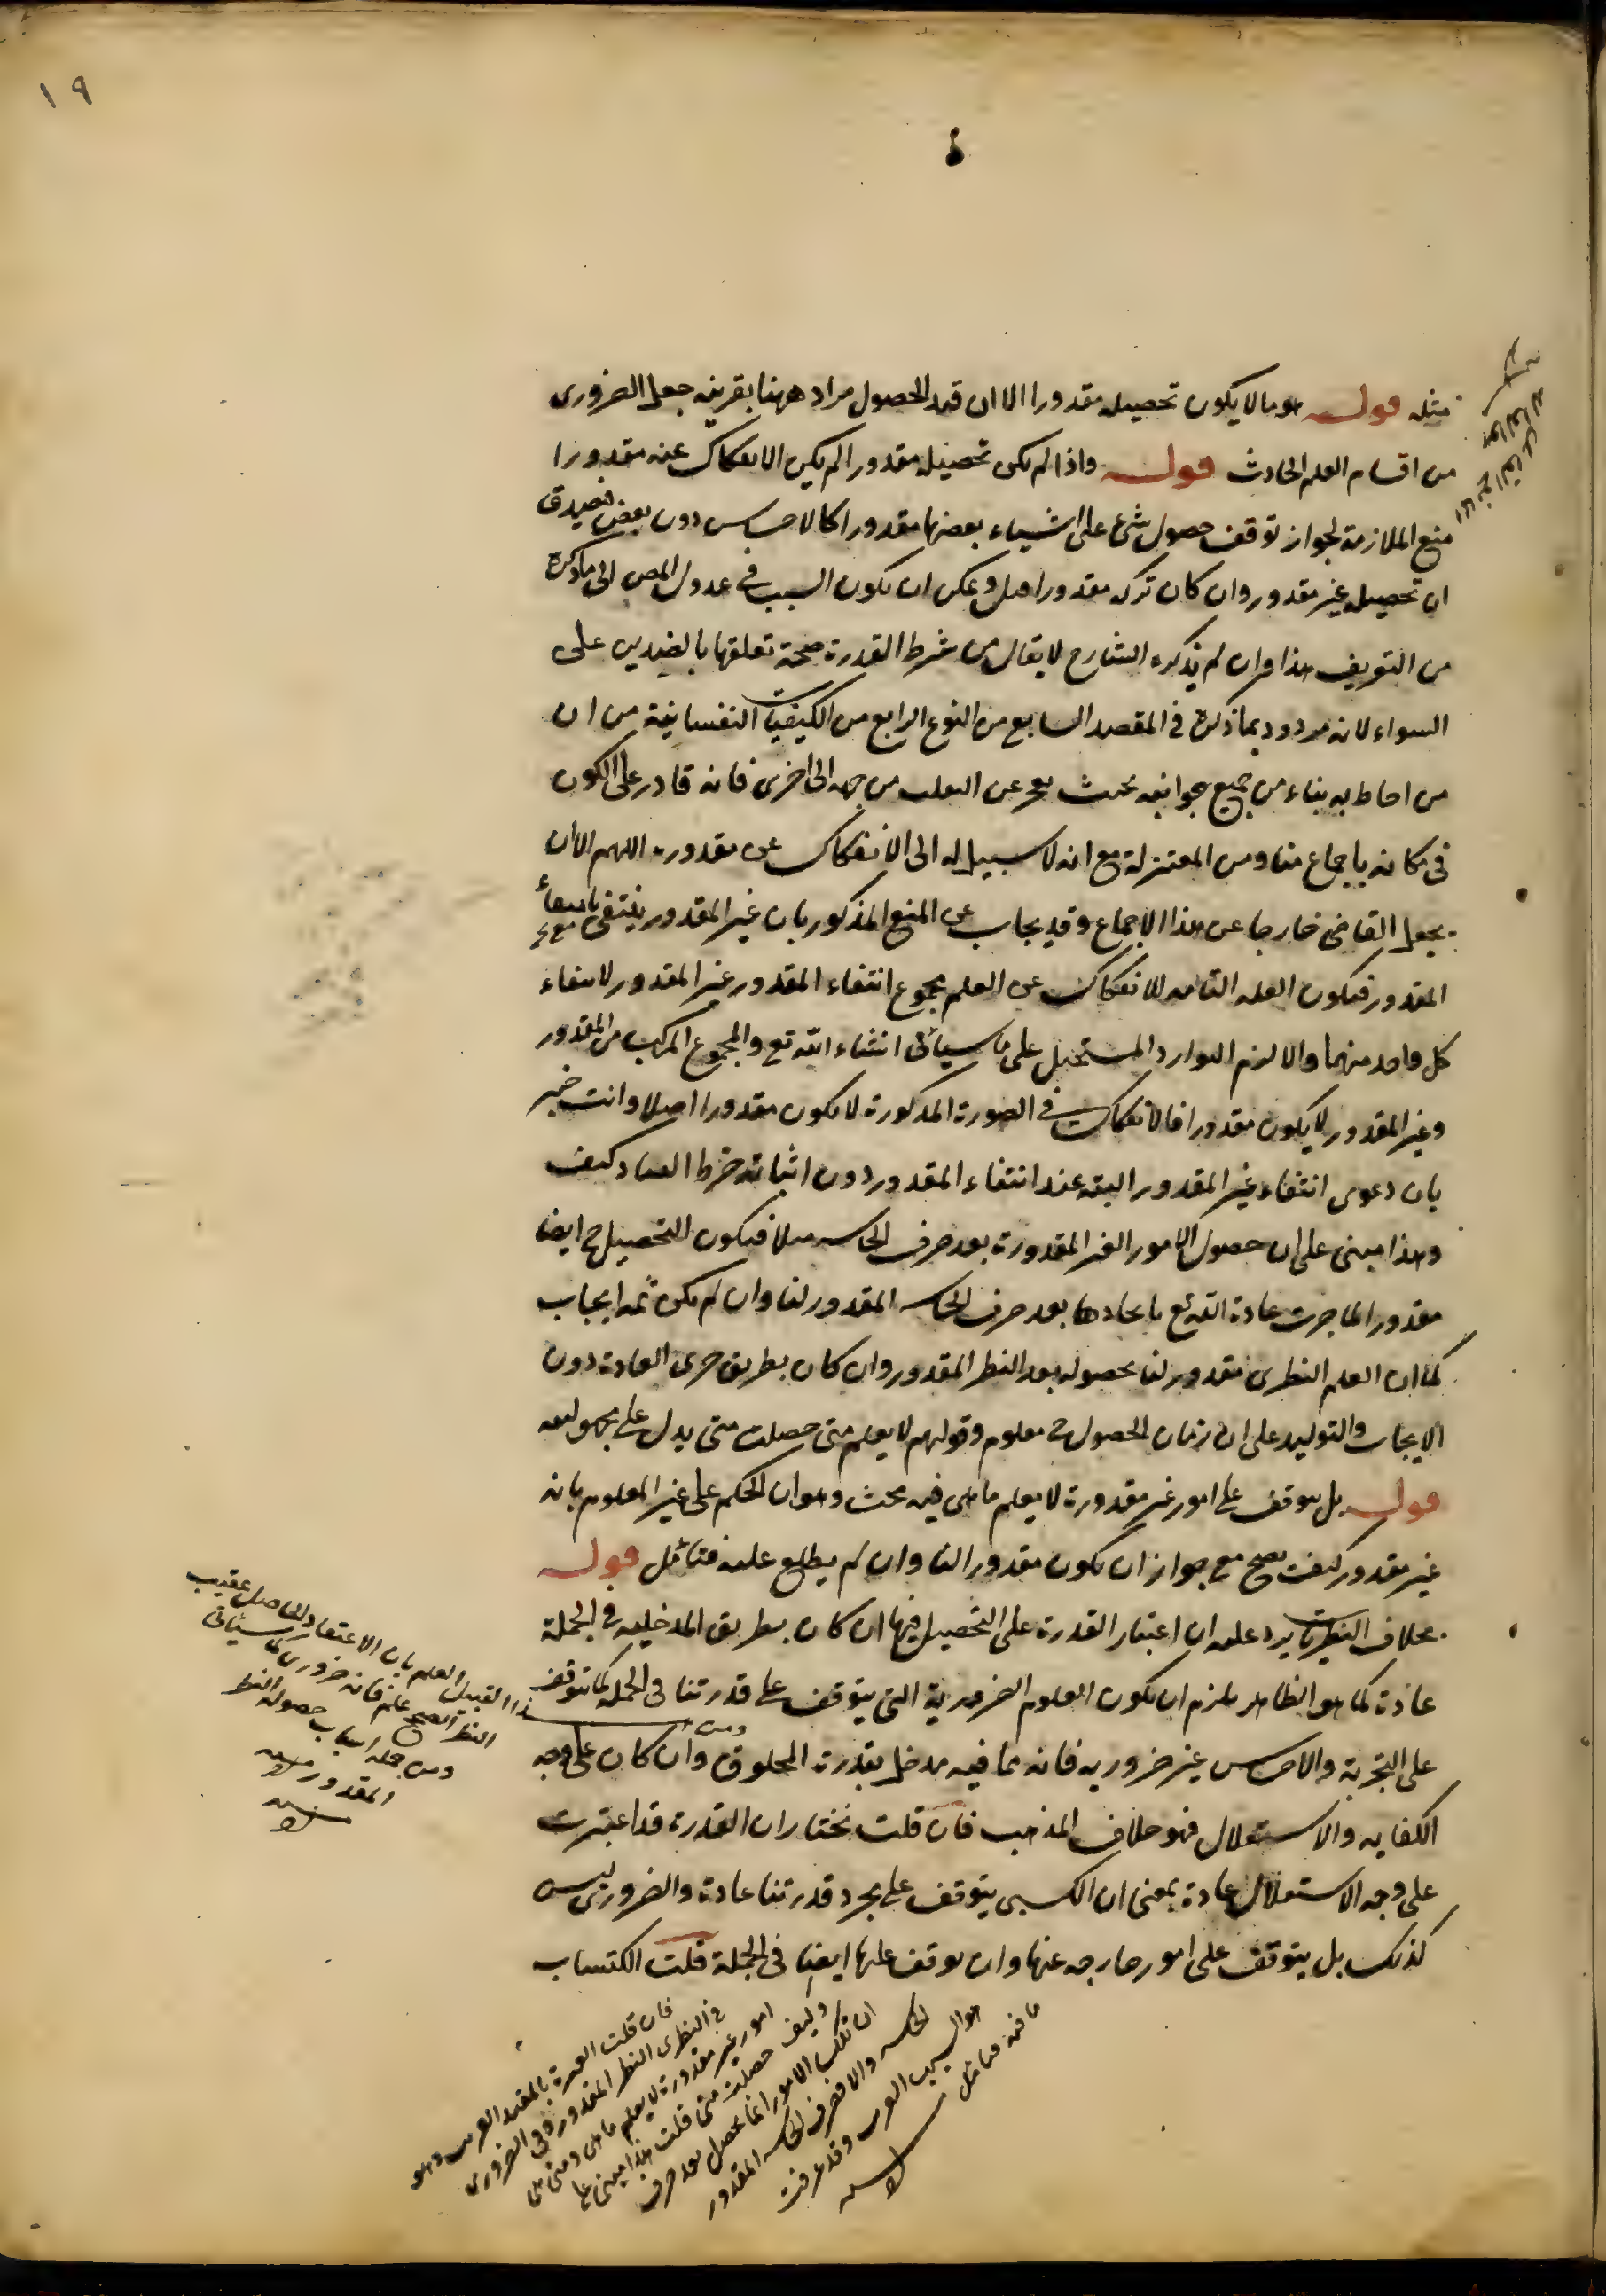 ١٩
مثله قوله هو ما لا يكون تحصيله مقدورا الا ان قيد الحصول مراد ههنا بقرينة جعل الضرورى
من اقسام العلم الحادث قوله واذا لم يكن تحصيله مقدورا لم يكن الانفكاك عنه مقدورا
منع الملازمة لجواز توقف حصول شئ على اشياء بعضها مقدورا كالاحساس دون بعض فيصدق
ان تحصيله غير مقدور وان كان تركه مقدورا ويمكن ان يكون السبب فى عدول المص الى ما ذكره
من التعريف هذا وان لم يذكره الشارح لا يقال من شرط القدرة صحة تعلقها بالضدين على
السواء لانه مردود بما ذكره فى المقصد السابع من النوع الرابع من الكيفيات النفسانية من ان
من احاط به بناء من جميع جوانبه بحيث يعجز عن التقلب من جهة الى اخرى فانه قادر على الكون
فى مكانه باجماع منا ومن المعتزلة مع انه لا سبيل له الى الانفكاك عن مقدوره اللهم الا ان
يجعل القاضى خارجا عن هذا الاجماع وقد يجاب عن المنع المذكور بان غير المقدور ينتفى بانتفاء
المقدور فيكون العلة التامة للانفكاك عن العلم مجموع انتفاء المقدور غير المقدور لا انتفاء
كل واحد منهما والا لزم التوارد المستحيل على ما سيأتى انشاء الله تع والمجموع المركب من المقدور
وغير المقدور لا يكون مقدورا فالانفكاك فى الصورة المذكورة لا يكون مقدورا اصلا وانت خبير
بان دعوى انتفاء غير المقدور البتة عند انتفاء المقدور دون اثباته خرط القتاد كيف
وهذا مبنى على ان حصول الامور الغير المقدورة بعد صرف الحاسة مثلا فيكون التحصيل ح ايضا
مقدورا لما جرت عادة الله تع بايجادها بعد صرف الحاسة المقدور لنا وان لم يكن ثمه ايجاب
كما ان العلم النظرى مقدور لنا بحصوله بعد النظر المقدور وان كان بطريق جرى العادة دون
الايجاب والتوليد على ان زمان الحصول ح معلوم وقولهم لا يعلم متى حصلت متى يدل على مجهوليته
قوله بل يتوقف على امور غير مقدورة لا يعلم ما هى فيه بحث وهو ان الحكم على غير المعلوم بانه
غير مقدور كيف يصح مع جواز ان يكون مقدورا لنا وان لم يطلع عليه فتأمل قوله
بخلاف النظريات يرد عليه ان اعتبار القدرة على التحصيل فيها ان كان بطريق المدخلية فى الجملة
عادة كما هو الظاهر يلزم ان يكون العلوم الضرورية التى يتوقف على قدرتنا فى الجملة كما يتوقف
على التجربة والاحساس غير ضرورية فانه مما فيه مدخل بقدرة المخلوق وان كان على وجه
الكفاية والاستقلال فهو خلاف المذهب فان قلت نختار ان القدرة قد اعتبرت
على وجه الاستقلال عادة بمعنى ان الكسبى يتوقف على مجرد قدرتنا عادة والضرورى ليس
كذلك بل يتوقف على امور خارجة عنها وان توقف عليها ايضا فى الجملة قلت الكتساب
ومن هذا القبيل العلم بان الاعتقاد الحاصل عقيب
النظر الصحيح علم فانه ضرورى كما سيأتى
ومن جملة اسباب حصوله النظر
المقدور
فان قلت العبرة بالمقيد القريب وهو
فى النظرى النظر المقدور وفى الضرورى
امور غير مقدورة لا يعلم ما هى ومتى
وكيف حصلت قلت هذا مبنى على
ان تلك الامور انما يحصل بعد صرف
الحاسة والا فصرف الحاسة المقدور
هو السبب القريب وقد عرفت
ما فيه فتأمل